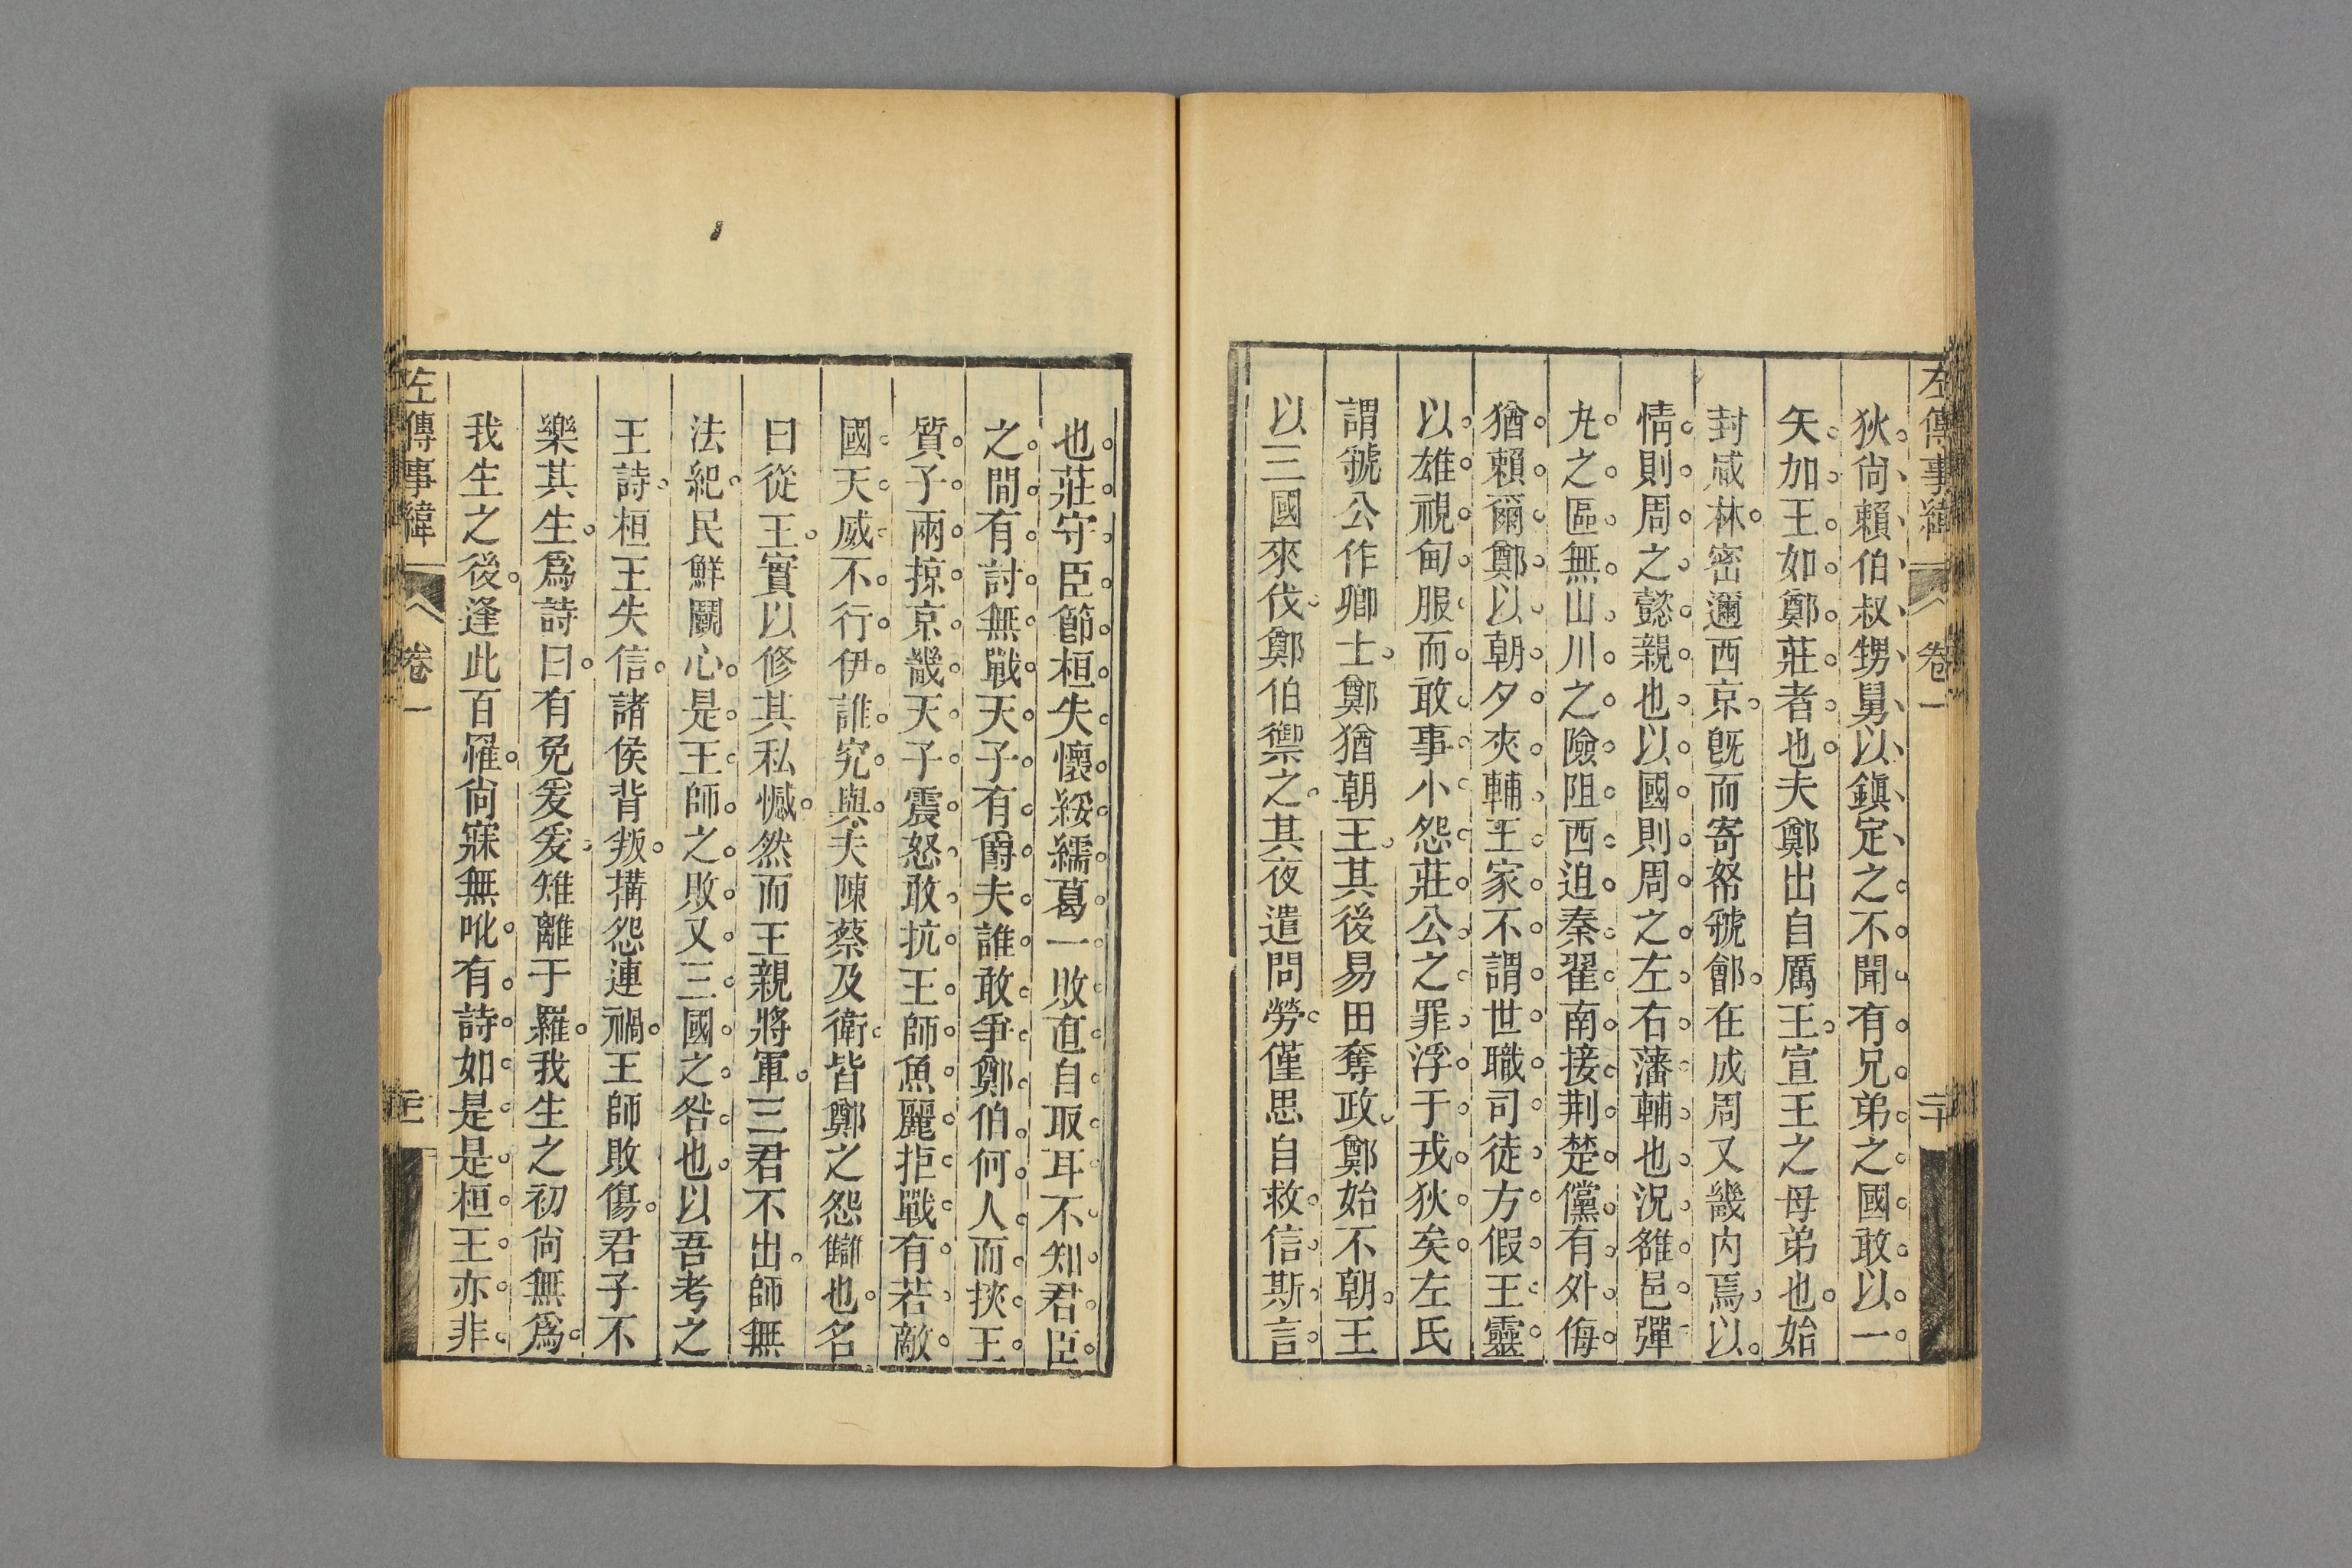 左傳事緯 卷一 二十
狄尙賴伯叔甥舅以鎮定之不聞有兄弟之國敢以一
矢加王如鄭莊者也夫鄭出自厲王宣王之母弟也始
封咸林密邇西京旣而寄帑虢鄶在成周又畿內焉以
情則周之懿親也以國則周之左右藩輔也況雒邑彈
丸之區無山川之險阻西迫秦翟南接荆楚儻有外侮
猶賴爾鄭以朝夕夾輔王家不謂世職司徒方假王靈
以雄視甸服而敢事小怨莊公之罪浮于戎狄矣左氏
謂虢公作卿士鄭猶朝王其後易田奪政鄭始不朝王
以三國來伐鄭伯禦之其夜遣問勞僅思自救信斯言
也莊守臣節桓失懷綏繻葛一敗直自取耳不知君臣
之間有討無戰天子有爵夫誰敢爭鄭伯何人而挾王
質子兩掠京畿天子震怒敢抗王師魚麗拒戰有若敵
國天威不行伊誰究與夫陳蔡及衛皆鄭之怨讎也名
曰從王實以修其私憾然而王親將軍三君不出師無
法紀民鮮鬬心是王師之敗又三國之咎也以吾考之
王詩桓王失信諸侯背叛搆怨連禍王師敗傷君子不
樂其生爲詩曰有兔爰爰雉離于羅我生之初尙無爲
我生之後逢此百罹尙寐無吪有詩如是是桓王亦非
左傳事緯 卷一